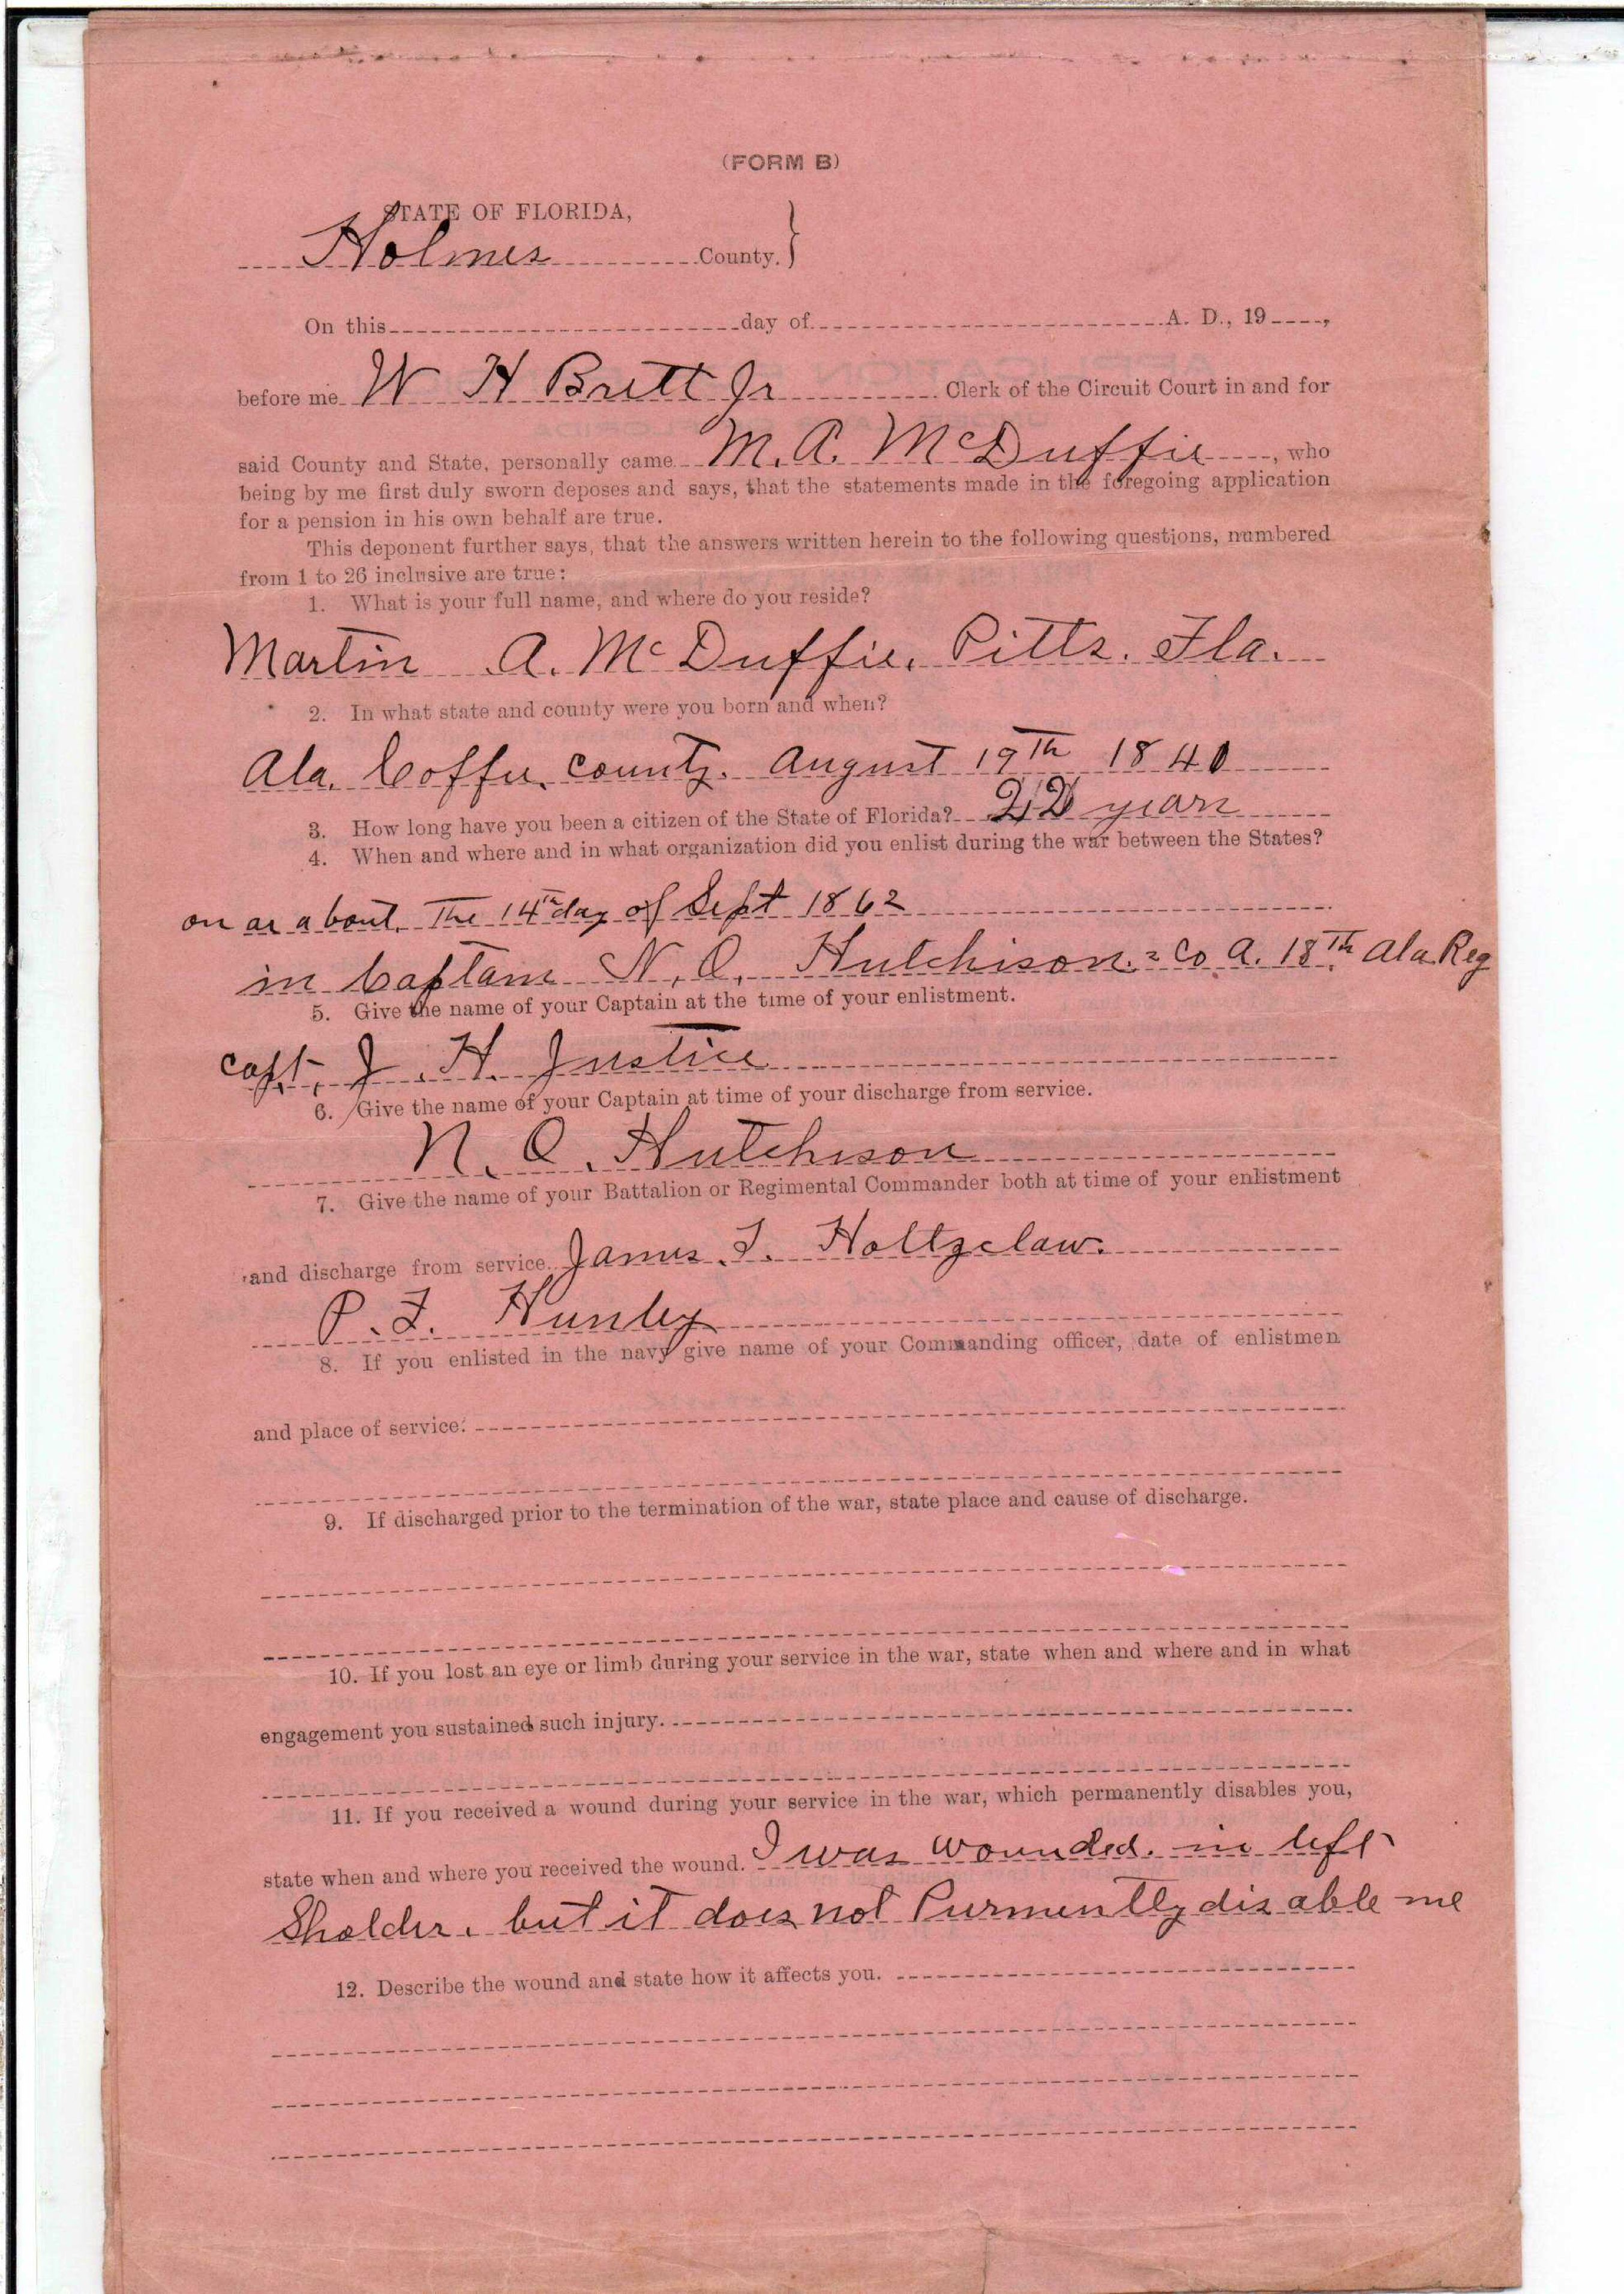 (FORM B)
STATE OF FLORIDA,
Holmes County.
On this day of A. D., 19 ,
before me W H Brett Jr Clerk of the Circuit Court in and for
said County and State, personally came M. A. McDuffie, who
being by me first duly sworn deposes and says, that the statements made in the foregoing application
for a pension in his own behalf are true.
This deponent further says, that the answers written herein to the following questions, numbered
from 1 to 26 inclusive are true:
1. What is your full name, and where do you reside?
Martin A. McDuffie. Pitts. Fla.
2. In what state and county were you born and when?
Ala. Coffee county. August 19th 1840
3. How long have you been a citizen of the State of Florida? years
4. When and where and in what organization did you enlist during the war between the States?
on or about The 14th day of Sept 1862
in Captain N. Q. Hutchison = Co A. 18th Ala Reg
5. Give the name of your Captain at the time of your enlistment.
Capt. J. H. Justice
6. Give the name of your Captain at time of your discharge from service.
N. Q. Hutchison
7. Give the name of your Battalion or Regimental Commander both at time of your enlistment
and discharge from service. James T. Holtzclaw.
P. F. Hunley
8. If you enlisted in the navy give name of your Commanding officer, date of enlistmen
and place of service.
9. If discharged prior to the termination of the war, state place and cause of discharge.
10. If you lost an eye or limb during your service in the war, state when and where and in what
engagement you sustained such injury.
11. If you received a wound during your service in the war, which permanently disables you,
state when and where you received the wound. I was wounded. in left
Sholder. but it does not Purmently disable me
12. Describe the wound and state how it affects you.